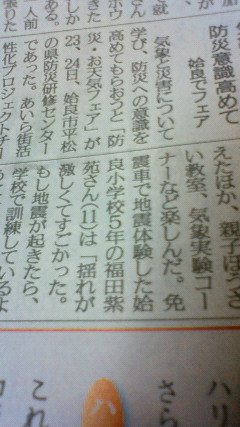 防災意識高めて
姶良でフェア
気象と災害について
学び、防災への意識を
高めてもらおうと「防
災・お天気フェア」が
23、24日、姶良市平松
の県防災研修センター
であった。あいら街活
性化プロジェクトチー
えたほか、親子ぼうさ
い教室、気象実験コー
ナーなど楽しんだ。免
震車で地震体験した姶
良小学校5年の福田紫
苑さん(11)は「揺れが
激しくてすごかった。
もし地震が起きたら、
学校で訓練しているよ
ハリ
さら
これ
ハ